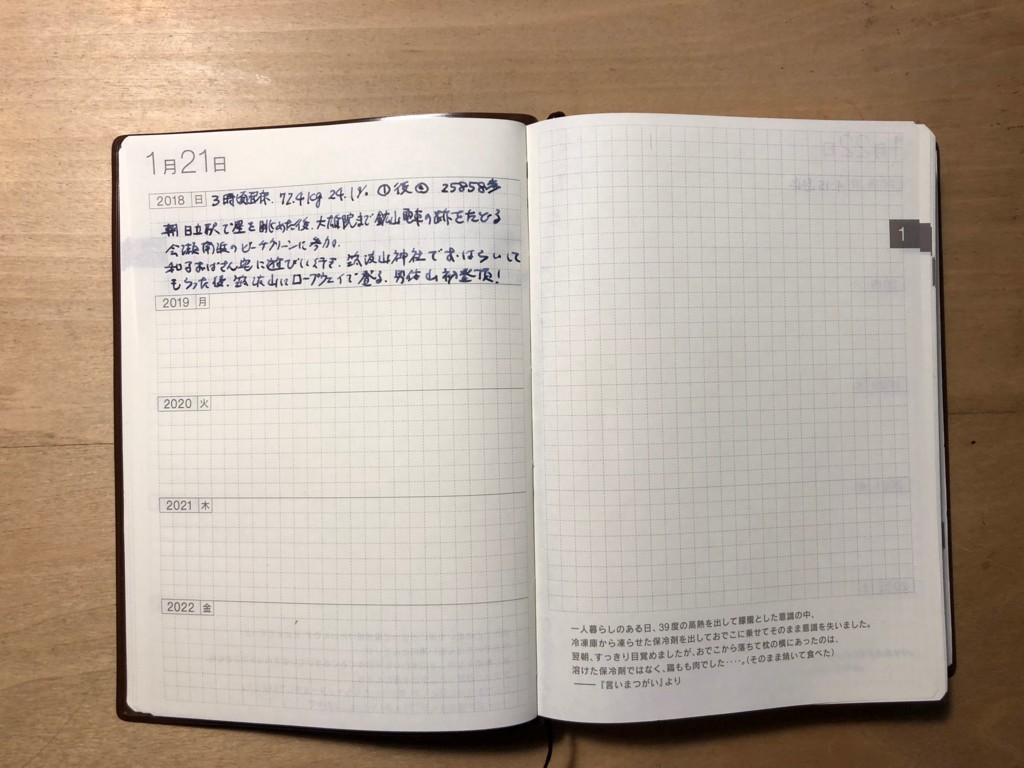 1月21日
2018 日 3時頃起床. 72.4kg 24.1% ① 後④ 25858歩
朝日立駅で星を眺めた後、大雄院まで鉱山電車の跡をたどる
会瀬南浜のビーチクリーンに参加.
和子おばさん宅に遊びに行き、筑波山神社でおはらいして
もらった後、筑波山にロープウェイで登る. 男体山初登頂!
2019 月
2020 火
2021 木
2022 金
1
一人暮らしのある日、39度の高熱を出して朦朧とした意識の中、
冷凍庫から凍らせた保冷剤を出しておでこに乗せてそのまま意識を失いました。
翌朝、すっきり目覚めましたが、おでこから落ちて枕の横にあったのは、
溶けた保冷剤ではなく、鶏もも肉でした‥‥。(そのまま焼いて食べた)
――『言いまつがい』より